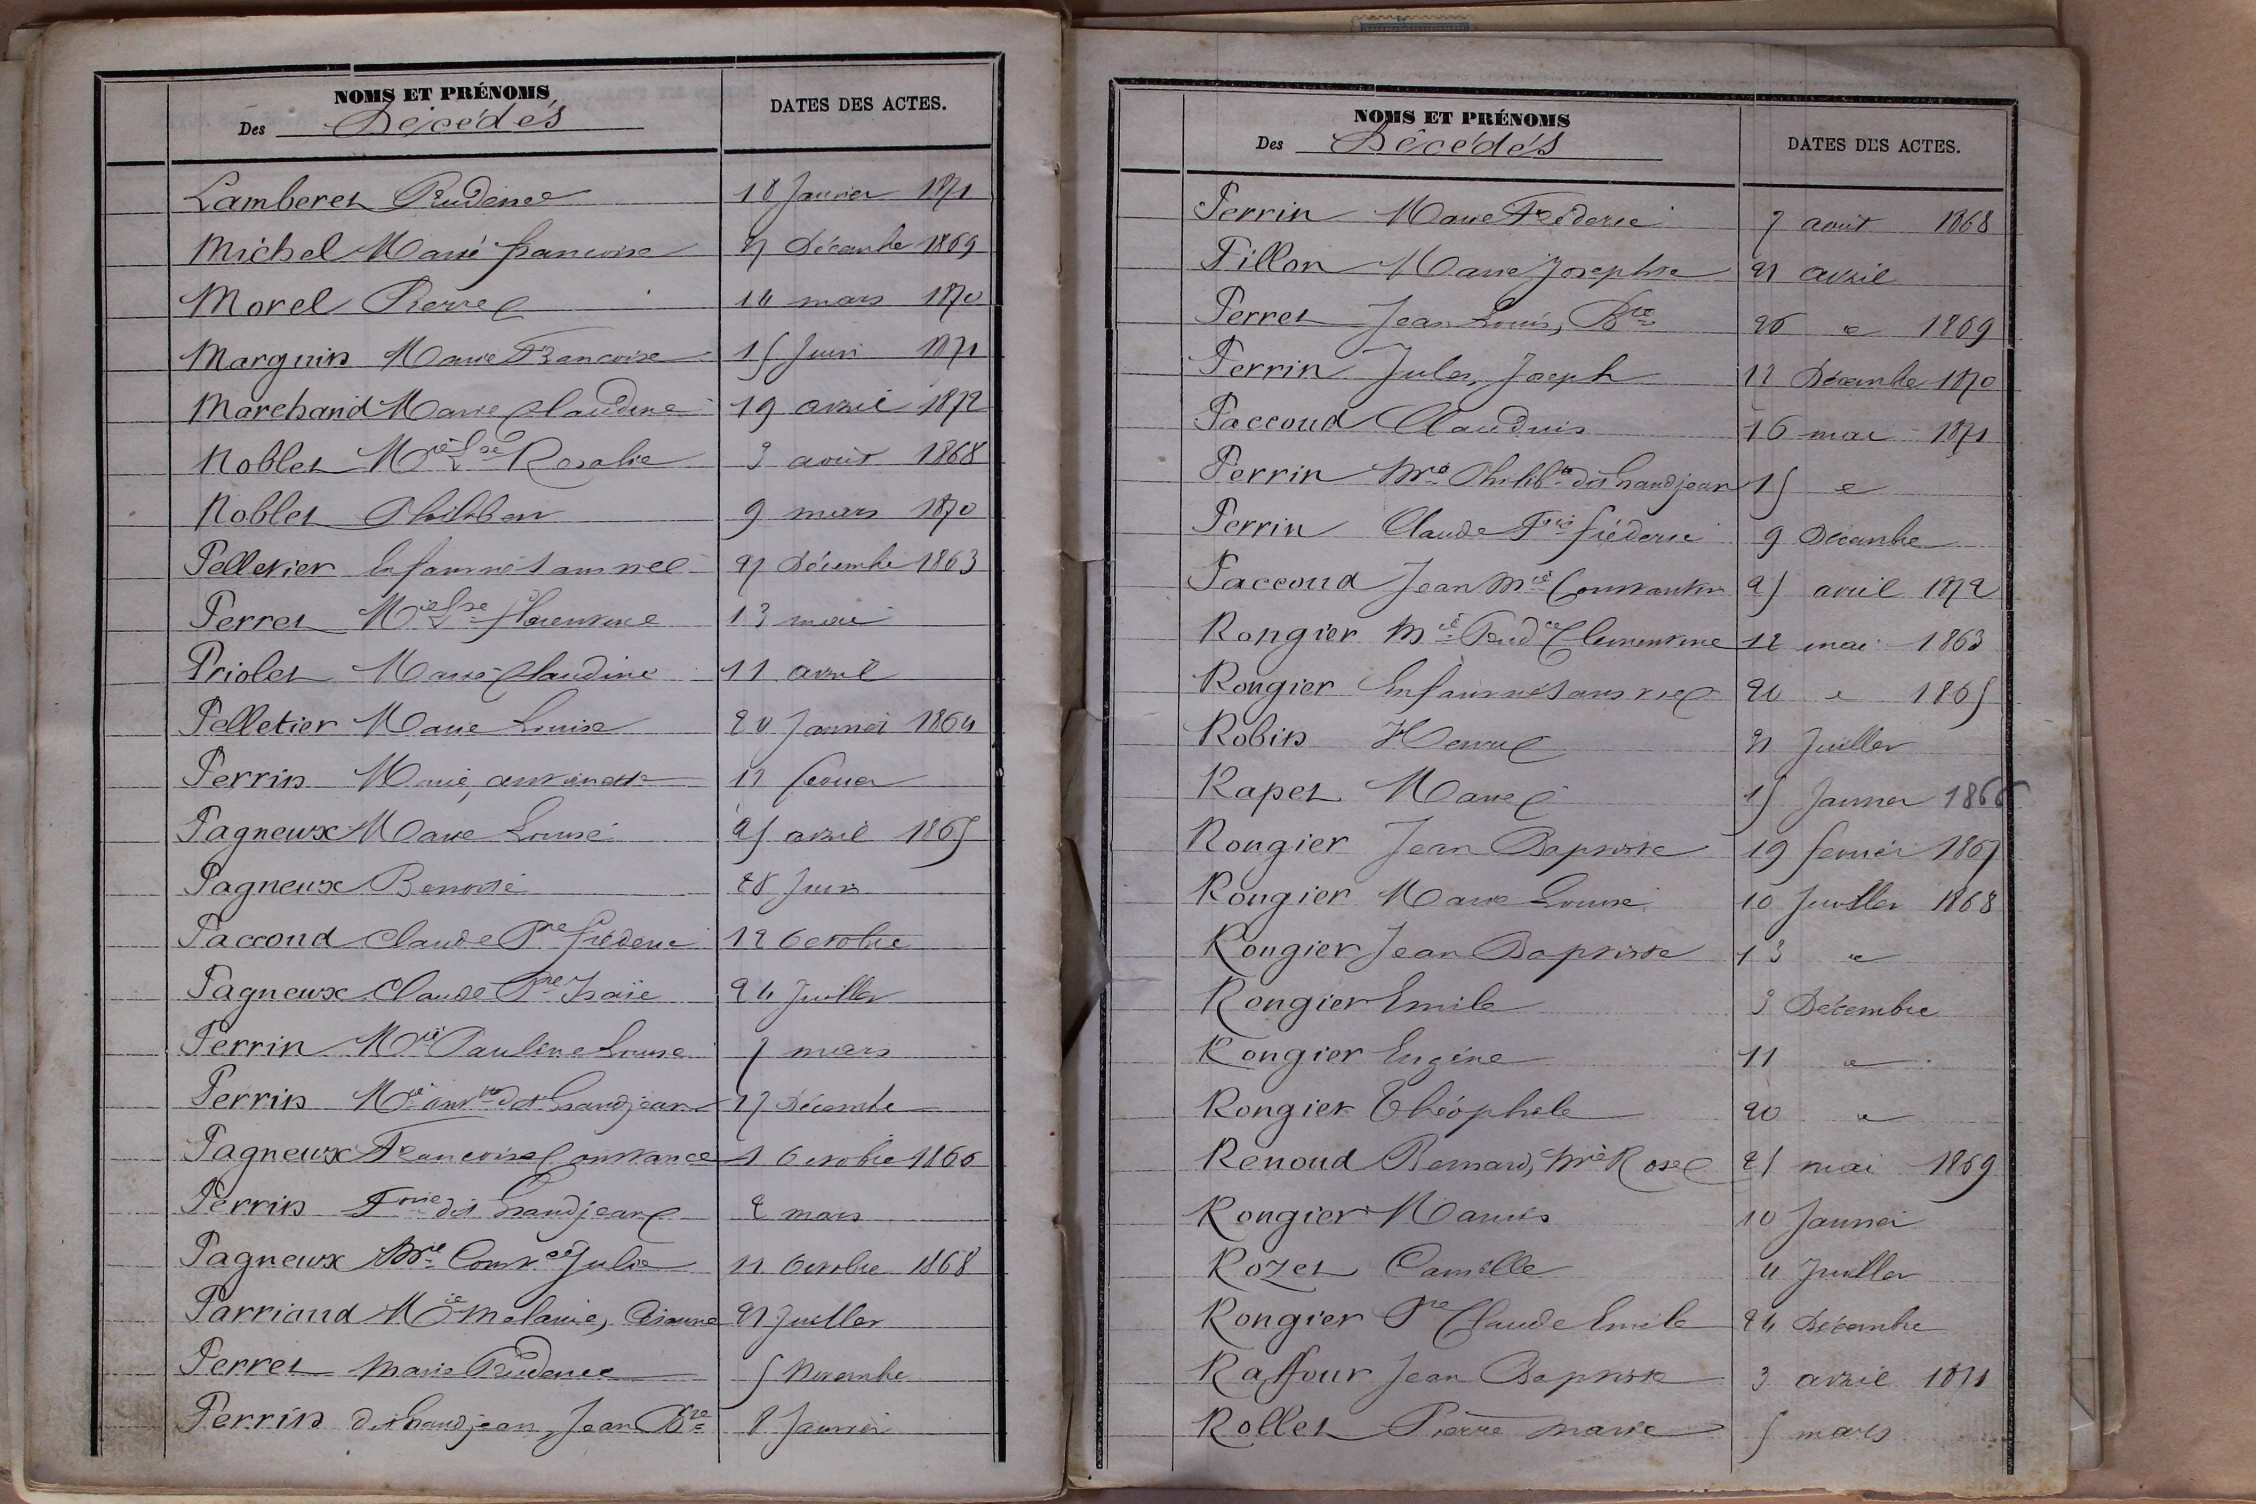 NOMS ET PRÉNOMS
Des Décédés
DATES DES ACTES.
Lamberet Prudence 18 Janvier 1871
Michel Marie françoise 21 Décembre 1869
Morel Pierre 14 mars 1870
Marguin Marie Françoise 15 Juin 1871
Marchand Marie Claudine 19 avril 1872
Noblet Mie Lse Rosalie 3 août 1868
Noblet Philibert 9 mars 1870
Pelletier Enfant né sans vie 27 Décembre 1863
Perret Mie Lse florentine 13 mai
Priolet Marie Claudine 11 avril
Pelletier Marie Louise 20 Janvier 1864
Perrin Marie, antoinette 12 fevrier
Pagneux Marie Louise 25 avril 1865
Pagneux Benoite 28 Juin
Paccoud Claude Pre fréderic 12 Octobre
Pagneux Claude Pre Isaïe 24 Juillet
Perrin Mie Pauline Louise 7 mars
Perrin Mie antte dit Grandjean 17 Décembre
Pagneux Françoise Constance 1 Octobre 1866
Perrin Fois dit Grandjean 2 mars
Pagneux Mie Constce Julie 11 Octobre 1868
Parriaud Mie Melanie, 21 Juillet
Perret Marie Prudence 5 Novembre
Perrin dit Grandjean, Jean Bte 8 Janvier
NOMS ET PRÉNOMS
Des Décédés
DATES DES ACTES.
Perrin Marie Fréderic 7 août 1868
Pillon Marie Josephte 21 avril
Perret Jean Louis, Bte 26 " 1869
Perrin Jules, Joseph 12 Décembre 1870
Paccoud Claudius 16 mai 1871
Perrin Mie Philibte dit Grandjean 15 "
Perrin Claude Fois fréderic 9 Décembre
Paccoud Jean Mie Constantin 25 avril 1872
Rongier Mie Prudce Clementine 12 mai 1863
Rongier Enfant né sans vie 20 " 1865
Robin Henri 21 Juillet
Rapet Marie 15 Janvier 1866
Rongier Jean Baptiste 19 fevrier 1867
Rongier Marie Louise 10 Juillet 1868
Rongier Jean Baptiste 13 "
Rongier Emile 3 Décembre
Rongier Eugène 11 "
Rongier Théophile 20 "
Renoud Bernard, Mie Rose 25 mai 1869
Rongier Marius 10 Janvier
Rozet Camille 4 Juillet
Rongier Pre Claude Emile 24 Décembre
Raffour Jean Baptiste 3 avril 1871
Rollet Pierre marie 5 mars